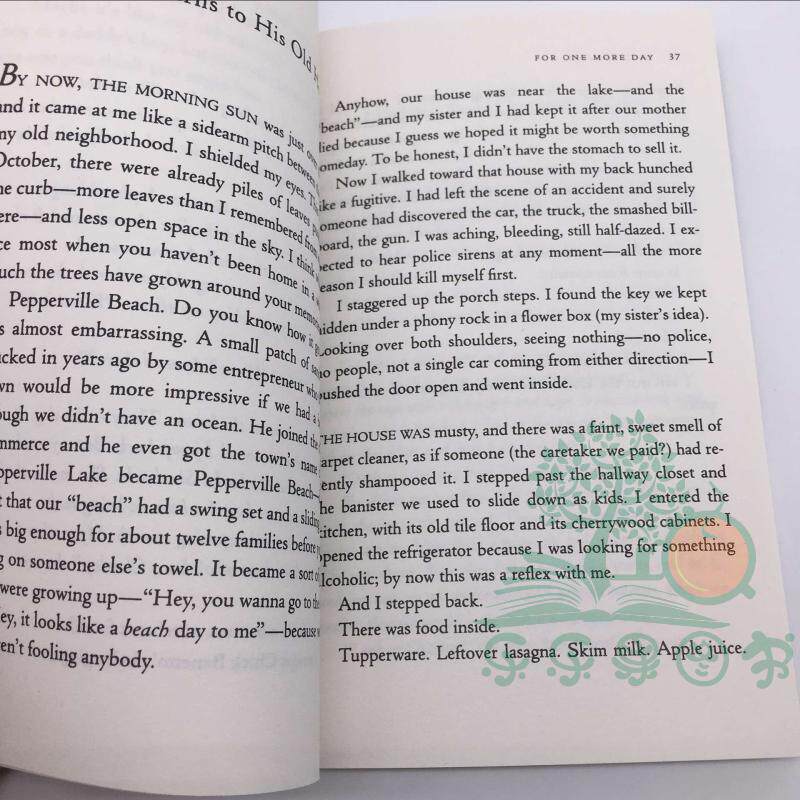 to His Old
BY NOW, THE MORNING SUN was just
and it came at me like a sidearm pitch between
my old neighborhood. I shielded my eyes.
October, there were already piles of leaves
the curb—more leaves than I remembered from
ere—and less open space in the sky. I think
ce most when you haven't been home in a
uch the trees have grown around your
Pepperville Beach. Do you know how
s almost embarrassing. A small patch of
ucked in years ago by some entrepreneur who
wn would be more impressive if we had a
ough we didn't have an ocean. He joined the
mmerce and he even got the town's name
epperville Lake became Pepperville Beach—
t that our “beach” had a swing set and a
s big enough for about twelve families before
g on someone else's towel. It became a sort of
were growing up—“Hey, you wanna go to the
ey, it looks like a beach day to me”—because
en't fooling anybody.
FOR ONE MORE DAY 37
Anyhow, our house was near the lake—and the
“beach”—and my sister and I had kept it after our mother
died because I guess we hoped it might be worth something
omeday. To be honest, I didn't have the stomach to sell it.
Now I walked toward that house with my back hunched
ike a fugitive. I had left the scene of an accident and surely
omeone had discovered the car, the truck, the smashed bill-
oard, the gun. I was aching, bleeding, still half-dazed. I ex-
ected to hear police sirens at any moment—all the more
eason I should kill myself first.
I staggered up the porch steps. I found the key we kept
idden under a phony rock in a flower box (my sister's idea).
Looking over both shoulders, seeing nothing—no police,
no people, not a single car coming from either direction—I
pushed the door open and went inside.
THE HOUSE WAS musty, and there was a faint, sweet smell of
arpet cleaner, as if someone (the caretaker we paid?) had re-
ently shampooed it. I stepped past the hallway closet and
he banister we used to slide down as kids. I entered the
kitchen, with its old tile floor and its cherrywood cabinets. I
opened the refrigerator because I was looking for something
lcoholic; by now this was a reflex with me.
And I stepped back.
There was food inside.
Tupperware. Leftover lasagna. Skim milk. Apple juice.
乐乐果图书